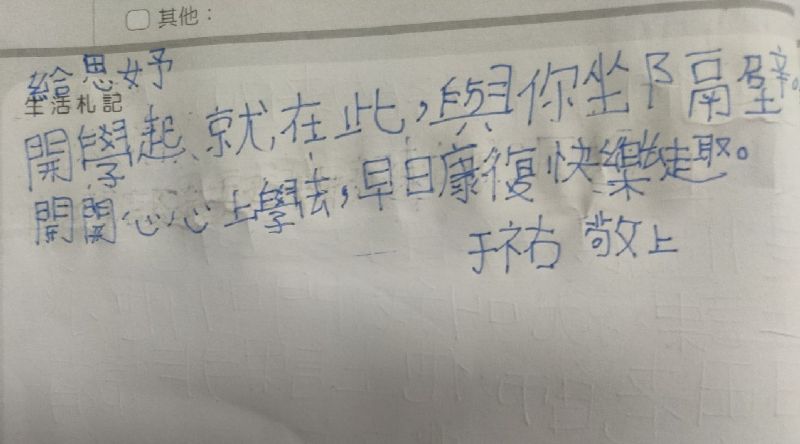 其他：
給思妤
生活札記
開學起、就在此，與你坐隔壁。
開開心心上學去，早日康復快樂趣。
于祐 敬上